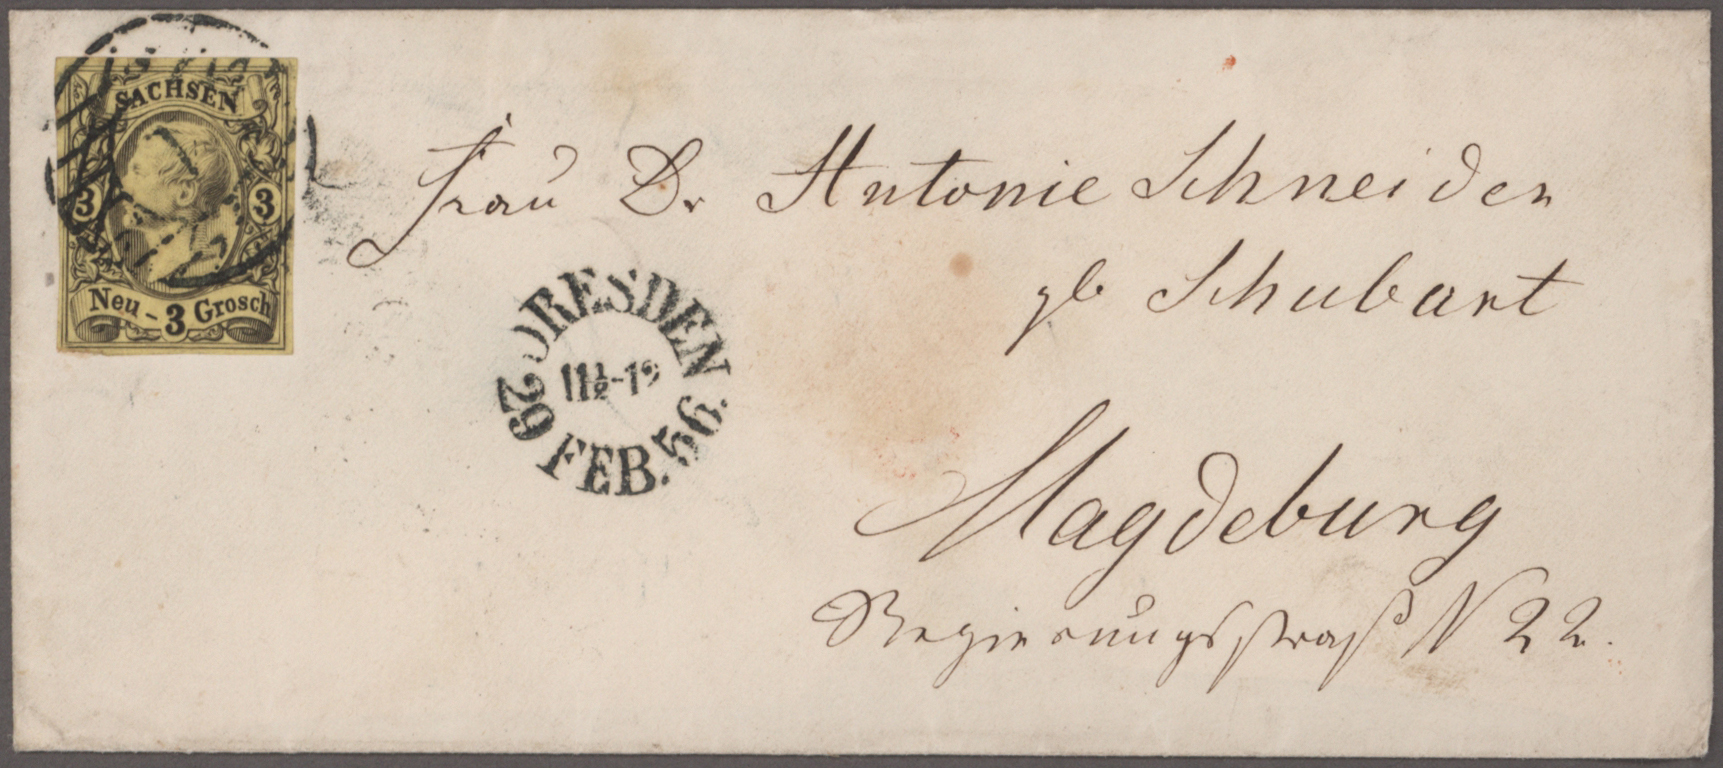 SACHSEN
3 3
Neu-3 Grosch
Frau Dr Antonie Schneider
gb Schubart
DRESDEN
11½-12
29 FEB. 56.
Magdeburg
Regierungsstraß N 22.